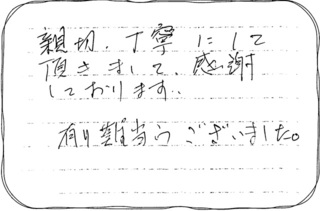 親切、丁寧にして
頂きまして、感謝
しております。
有り難当うございました。